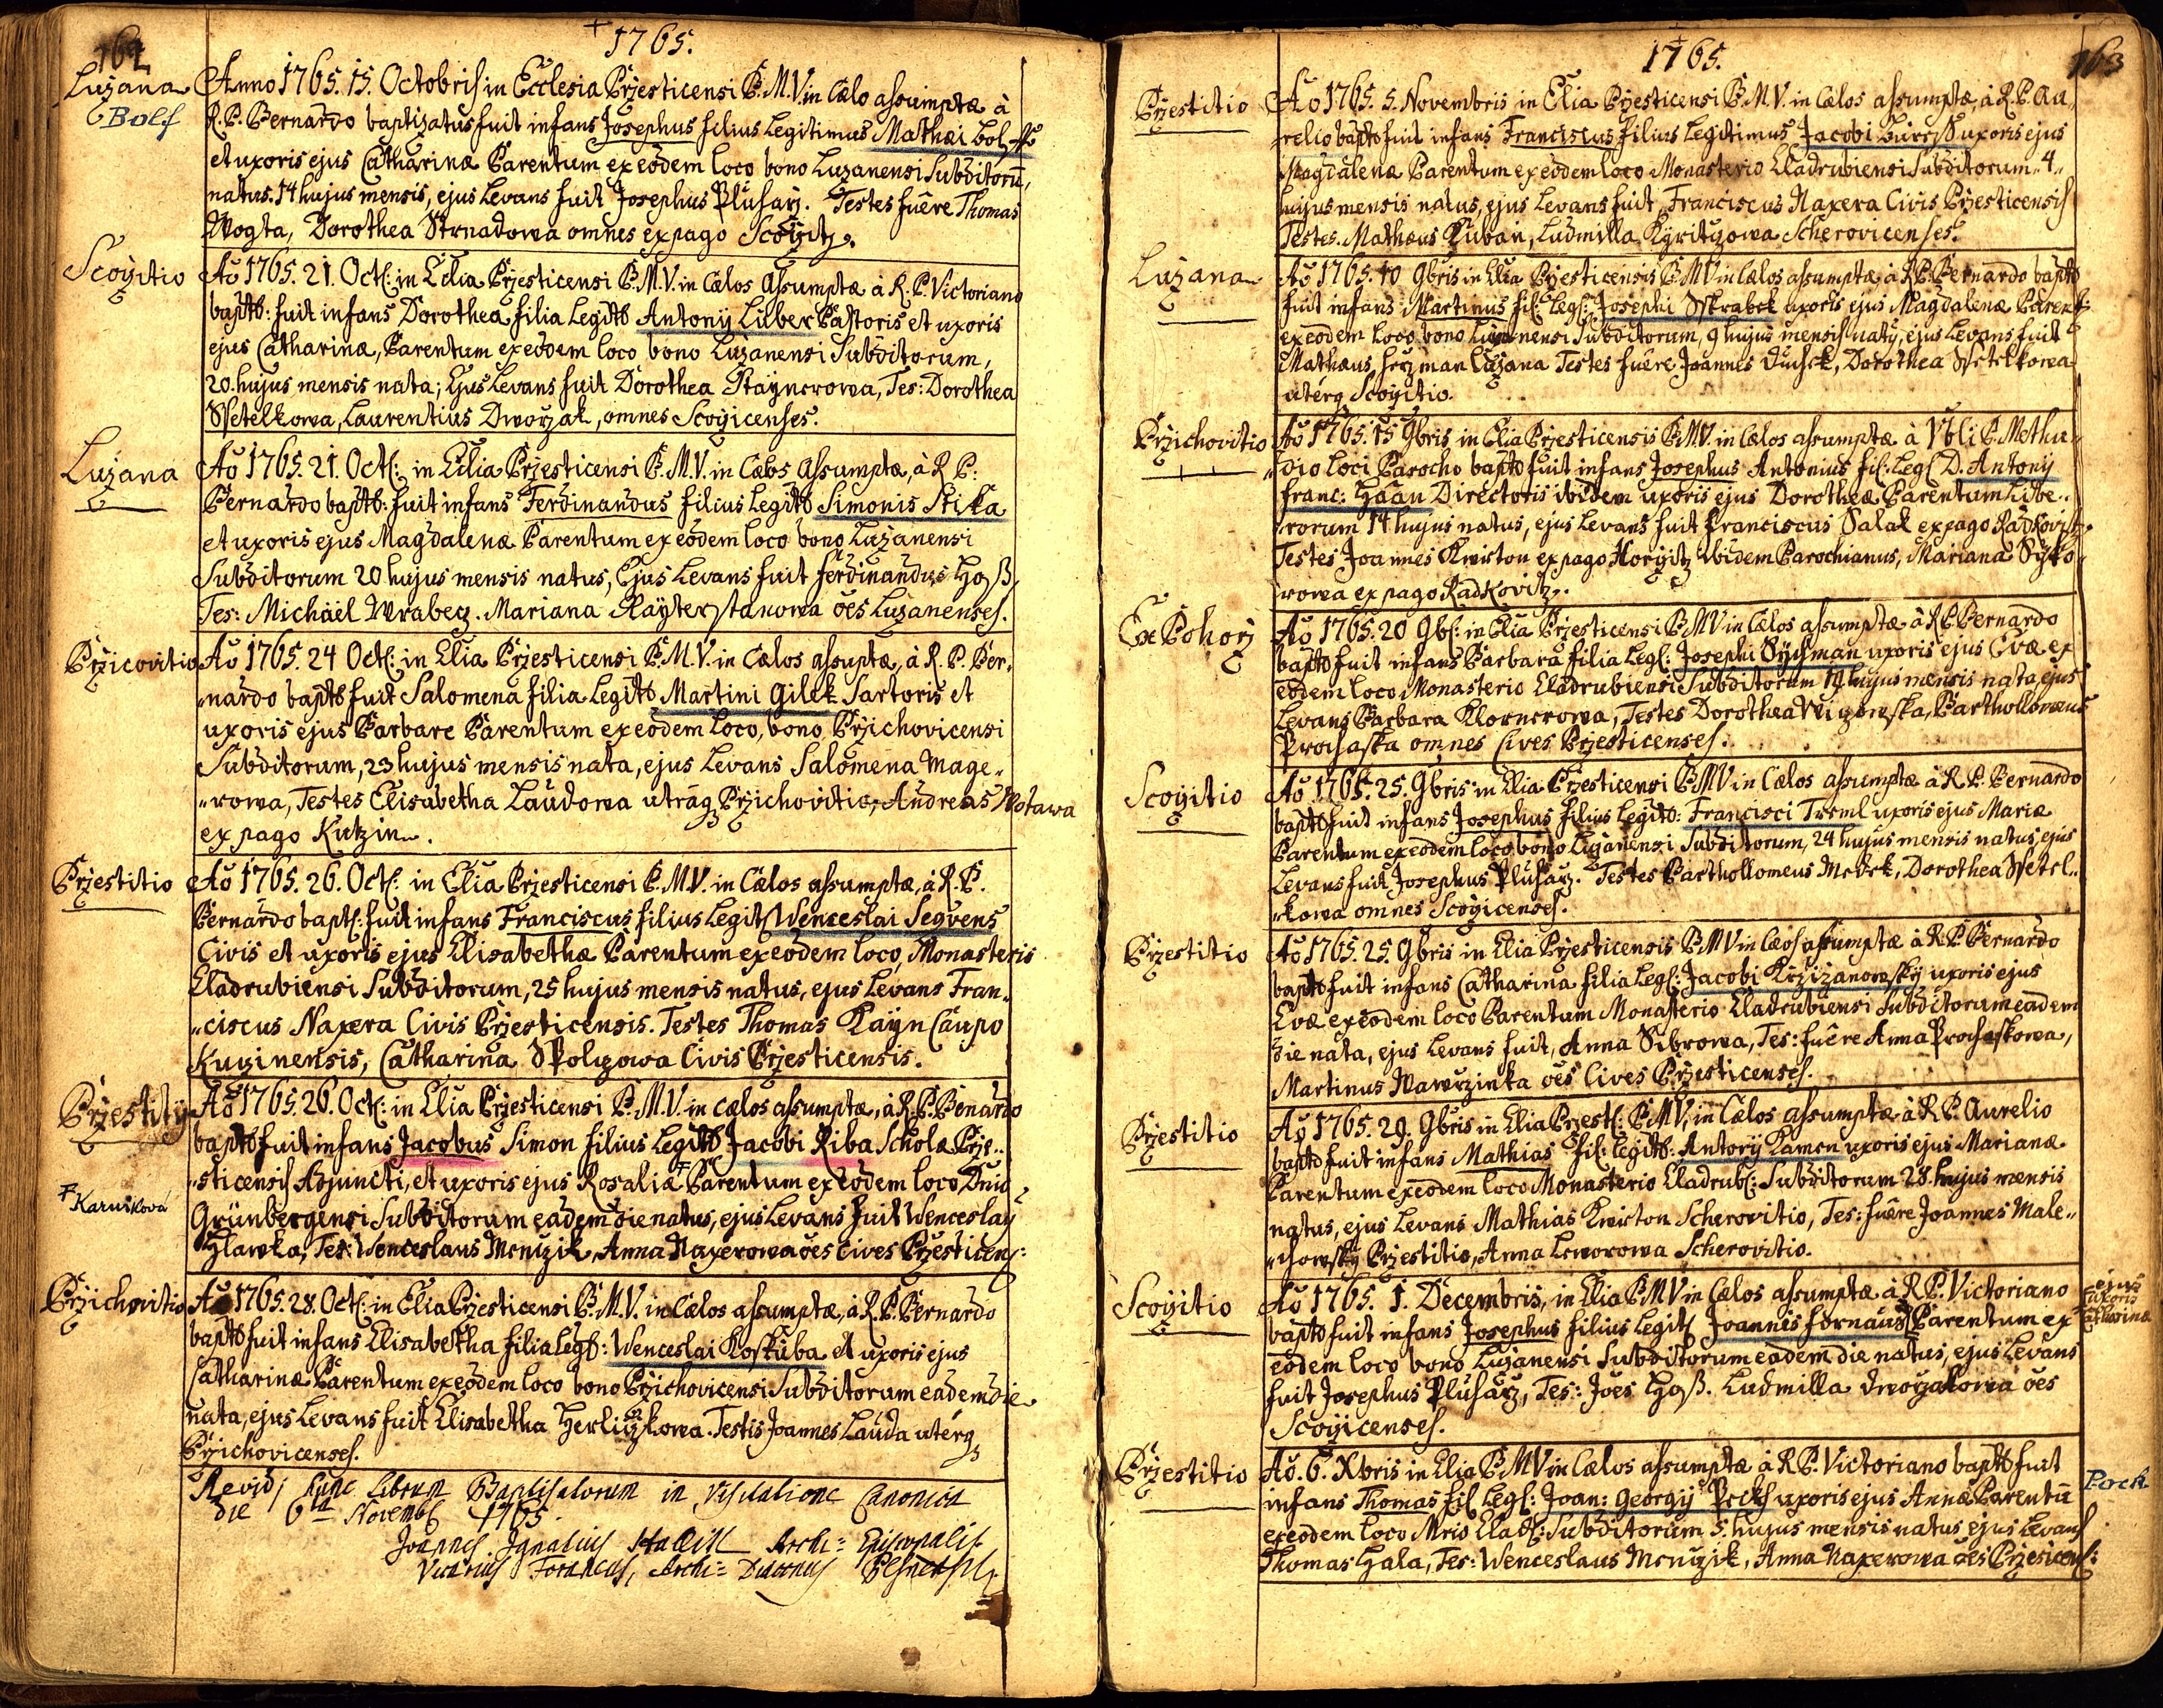 162
1765.
Luzana
Bolf
Anno 1765. 15. Octobris in Ecclesia Przesticensi B. M. V. in Cælo assumptæ à
R. P. Bernardo baptizatus fuit infans Josephus filius Legitimus Mathæi Bolf
et uxoris ejus Catharinæ Parentum ex eodem loco bono Luzanensi Subditorū,
natus. 14 hujus mensis, ejus Levans fuit Josephus Plúharz. Testes fuêre Thomas
Wogta, Dorothea Strnadowa omnes ex pago Scozitz.
Scozitio
Aō 1765. 21. Oct: in Ecclia Przesticensi B. M. V. in Cælos Assumptæ à R. P. Victoriano
bapttb: fuit infans Dorothea filia Legittb Antonÿ Lilber Pastoris et uxoris
ejus Catharinæ, Parentum ex eodem loco bono Luzanensi Subditorum,
20. hujus mensis nata; Ejus Levans fuit Dorothea Staÿnerowa, Tes: Dorothea
Ssetelkowa, Laurentius Dworzak, omnes Scozicenses.
Luzana
Aō 1765. 21. Oct: in Ecclia Przesticensi B. M. V. in Cælos Assumptæ, à R P:
Bernardo bapttb: fuit infans Ferdinandus filius Legittb Simonis Stika
et uxoris ejus Magdalenæ Parentum ex eodem loco bono Luzanensi
Subditorum 20 hujus mensis natus, Ejus Levans fuit Ferdinandus Hoß,
Tes: Michaël Wrabecz. Mariana Raÿterstanowa oēs Luzanenses.
Przicovitio
Aō 1765. 24 Oct: in Ecclia Przesticensi B. M. V. in Cælos assuptæ, à R. P. Ber-
nardo bapttb fuit Salomena filia Legittb Martini Gilek Sartoris et
uxoris ejus Barbare Parentum ex eodem Loco, bono Przichovicensi
Subditorum, 23 hujus mensis nata, ejus Levans Salomena Mage-
rowa, Testes Elisabetha Laudowa utraq Przichovitio, Andreas Wotawa
ex pago Kutzin.
Przestitio
Aō 1765. 26. Oct: in Ecclia Przesticensi B. M. V. in Cælos assumptæ, à R. P.
Bernardo bapt: fuit infans Franciscus filius Legit: Wenceslai Segvens
Civis et uxoris ejus Elisabethæ Parentum ex eodem loco, Monasteris
Cladrubiensi Subditorum, 25 hujus mensis natus, ejus Levans Fran-
ciscus Naxera Civis Przesticensis. Testes Thomas Kaÿn Caupo
Kuzinensis, Catharina Spolyzowa Civis Przesticensis.
Przestitÿ
Aō 1765. 26. Oct: in Ecclia Przesticensi B. M. V. in cælos assumptæ, à R. P. Benardo
bapttb fuit infans Jacobus Simon filius Legittb Jacobi Riba Scholæ Prze-
sticensis Adjuncti, et uxoris ejus Rosaliæ Parentum ex eodem loco Dnio
Karnšková
Grünbergensi Subditorum eadem die natus, ejus Levans fuit Wenceslaÿ
Hlawka, Tes: Wenceslaus Menzik, Anna Naxerowa oes cives Przesticens:
Przichovitio
Aō 1765. 28. Oct: in Ecclia Przesticensi B. M. V. in Cælos assumptæ, à R. P. Bernardo
bapttb fuit infans Elisabetha filia Leg: Wenceslai Koskuba et uxoris ejus
Catharinæ Parentum ex eodem loco bono Przichovicensi Subditorum eadem die
nata, ejus Levans fuit Elisabetha Herliczkowa. Testis Joannes Lauda uterq
Przichovicenses.
Revidi hunc Librum Baptisatorum in Visitatione Canonica
die 6ta Novemb 1765.
Joannes Ignatius Archi-Episcopalis
Vicarius Foraneus, Archi-Diaconus Pilsnensis
163
1765.
Przestitio
Aō 1765. 5. Novembris in Ecclia Przesticensi B. M. V. in Cælos assumptæ à R. P. Au-
relio baptto fuit infans Franciscus filius Legitimus Jacobi Bures uxoris ejus
Magdalenæ Parentum ex eodem loco Monasterio Cladrubiensi Subditorum 4
hujus mensis natus, ejus Levans fuit, Franciscus Naxera Civis Przesticensis
Testes. Mathæus Kuban, Ludmilla Kyritzowa Scherovicenses.
Luzana
Aō 1765. 10 9bris in Ecclia Przesticensis B. M V in Cælos assumptæ à R. P. Bernardo baptto
fuit infans Martinus fil: Leg: Josephi Skrabek uxoris ejus Magdalenæ Parent:
ex eodem loco bono Luzanensi Subditorum, 9 hujus mensis natq, ejus Levans fuit
Mathæus Herzman Luzana Testes fuêre Joannes Duchek, Dorothea Ssetelkowa
uterq Scozitio.
Przichovitio
Aō 1765. 15 9bris in Ecclia Przesticensis B. M V. in Cælos assumptæ à P. Methu-
dio loci Parocho baptto fuit infans Josephus Antonius fil: Leg: D. Antonÿ
Franc: Haan Directoris ibidem uxoris ejus Dorotheæ Parentum Libe-
rorum 14 hujus natus, ejus Levans fuit Franciscus Salak ex pago Radkovitz.
Testes Joannes Kwiton ex pago Horzitz ibidem Parochianus, Mariana Syko-
rowa ex pago Radkovitz.
Ex Pohorz
Aō 1765. 20 9b: in Ecclia Przesticensi B M V in Cælos assumptæ à R P Bernardo
baptto fuit infans Barbara filia Leg: Josephi Sychman uxoris ejus Evæ ex
eodem loco Monasterio Cladrubiensi Subditorum 19 hujus mensis nata, ejus
Levans Barbara Klornerowa, Testes Dorothea Wizowska, Barthollomæus
Prochaska omnes Cives Przesticenses.
Scozitio
Aō 1765. 25. 9bris in Ecclia Przesticensi B M V in Cælos assumptæ à R. P. Bernardo
baptto fuit infans Josephus filius Legitto: Francisci Treml uxoris ejus Mariæ
Parentum ex eodem loco bono Luzanensi Subditorum, 24 hujus mensis natus, ejus
Levans fuit Josephus Plúharz. Testes Barthollomeus Medek, Dorothea Ssetel-
kowa omnes Scozicenses.
Przestitio
Aō 1765. 25. 9bris in Ecclia Przesticensis B M V in Cælos assumptæ à R. P. Bernardo
baptto fuit infans Catharina filia Leg: Jacobi Krzizanowsky uxoris ejus
Evæ ex eodem loco Parentum Monasterio Cladrubiensi Subditorum eadem
die nata, ejus Levans fuit, Anna Sibrowa, Tes: fuêre Anna Prochaskowa,
Martinus Wawrzinka oes Cives Przesticenses.
Przestitio
Aō 1765. 29. 9bris in Ecclia Przest: B M V, in Cælos assumptæ à R P. Aurelio
baptto fuit infans Mathias fil: Legitto: Antonÿ Kamen uxoris ejus Marianæ
Parentum ex eodem loco Monasterio Cladrub: Subditorum 28. hujus mensis
natus, ejus Levans Mathias Kwiton Scherovitio, Tes: fuêre Joannes Male-
howsky Przestitio, Anna Leworowa Scherovitio.
Scozitio
Aō 1765. 1. Decembris, in Ecclia B M V in Cælos assumptæ à R P. Victoriano
baptto fuit infans Josephus filius Legit: Joannis Fornaus Parentum ex
ejus
uxoris
Catharinæ
eodem loco bono Luzanensi Subditorum eadem die natus, ejus Levans
fuit Josephus Plúharz, Tes: Joes Hoß. Ludmilla Dworzakowa oes
Scozicenses.
Przestitio
Aō. 6. Xbris in Ecclia B M V in Cælos assumptæ à R P. Victoriano baptto fuit
infans Thomas fil: Leg: Joan: Georgÿ Peck uxoris ejus Annæ Parentū
Peck
ex eodem loco Mrio Clad: Subditorum 5. hujus mensis natus ejus Levans
Thomas Hala, Tes: Wenceslaus Menzik, Anna Naxerowa oes Przesticens: